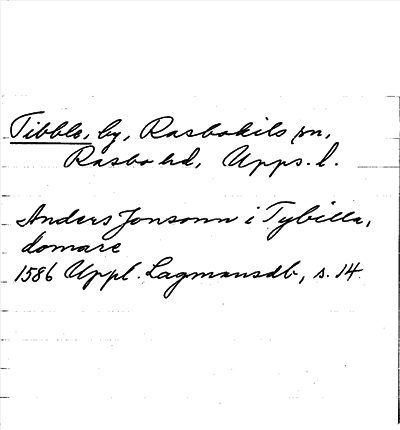 Tibble, by, Rasbokils sn,
Rasbo hd, Upps. l.
Anders Jonsonn i Tybilla,
domare
1586 Uppl. Lagmansdb, s. 14